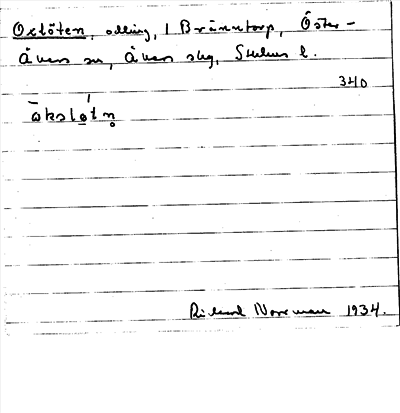 Oxtöten, odling, 1 Bränntorp, Öster-
Åkers sn, Åkers skg, Sthlms l.
340
ākslötn̥
Rickard Norrman 1934.